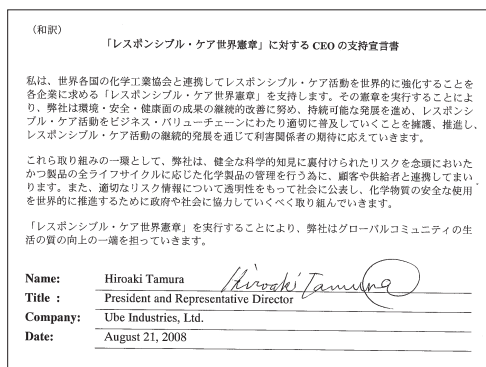 （和訳）
「レスポンシブル・ケア世界憲章」に対する CEO の支持宣言書
私は、世界各国の化学工業協会と連携してレスポンシブル・ケア活動を世界的に強化することを
各企業に求める「レスポンシブル・ケア世界憲章」を支持します。その憲章を実行することによ
り、弊社は環境・安全・健康面の成果の継続的改善に努め、持続可能な発展を進め、レスポンシ
ブル・ケア活動をビジネス・バリューチェーンにわたり適切に普及していくことを擁護、推進し、
レスポンシブル・ケア活動の継続的発展を通じて利害関係者の期待に応えていきます。
これら取り組みの一環として、弊社は、健全な科学的知見に裏付けられたリスクを念頭においた
かつ製品の全ライフサイクルに応じた化学製品の管理を行う為に、顧客や供給者と連携してまい
ります。また、適切なリスク情報について透明性をもって社会に公表し、化学物質の安全な使用
を世界的に推進するために政府や社会に協力していくべく取り組んでいきます。
「レスポンシブル・ケア世界憲章」を実行することにより、弊社はグローバルコミュニティの生
活の質の向上の一端を担っていきます。
Name: Hiroaki Tamura Hiroaki Tamura
Title : President and Representative Director
Company: Ube Industries, Ltd.
Date: August 21, 2008